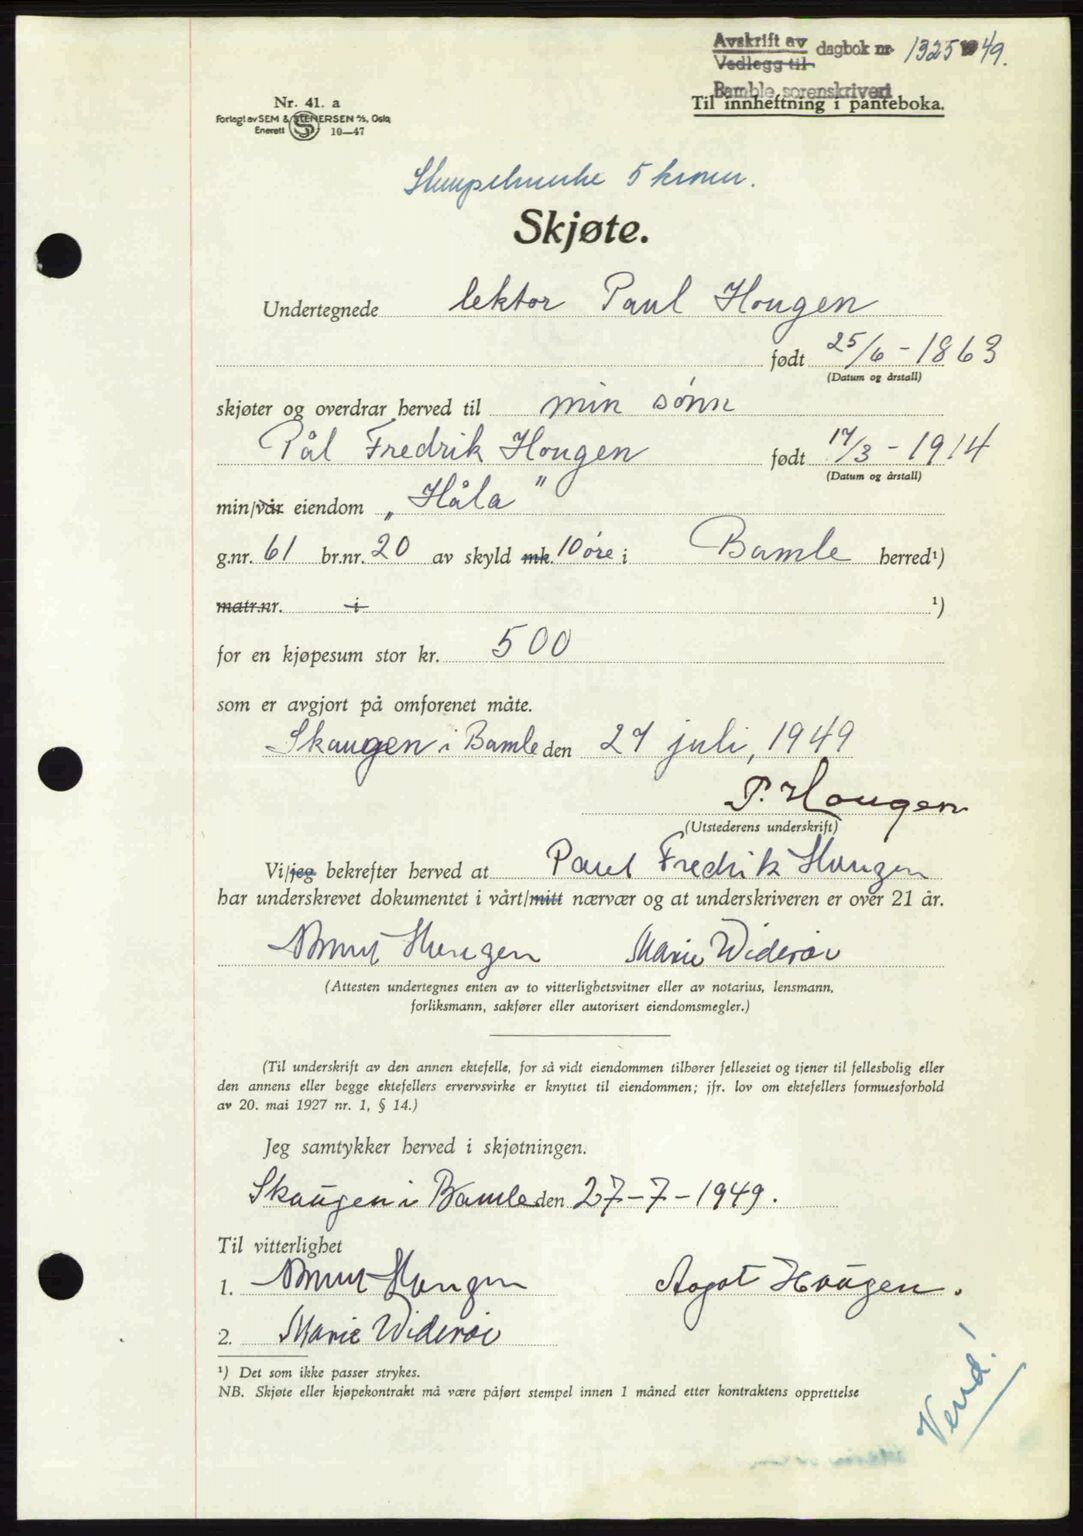 Avskrift av
Vedlegg til
dagbok nr 1325 1949.
Bamble sorenskriveri
Til innheftning i panteboka.
Nr. 41. a
Forlagt av SEM & STENERSEN A/S, Oslo
Enerett 10—47
Stempelmerke 5 kroner.
Skjøte.
Undertegnede lektor Paul Hougen
født 25/6 - 1863
(Datum og årstall)
skjøter og overdrar herved til min sønn
Pål Fredrik Hougen født 17/3 - 1914
(Datum og årstall)
min/vår eiendom „Håla"
g.nr. 61 br.nr. 20 av skyld mk. 10 øre i Bamle herred¹)
matr.nr. i ¹)
for en kjøpesum stor kr. 500
som er avgjort på omforenet måte.
Skaugen i Bamle den 27 juli, 1949
P. Hougen
(Utstederens underskrift)
Vi/jeg bekrefter herved at Paul Fredrik Hougen
har underskrevet dokumentet i vårt/mitt nærvær og at underskriveren er over 21 år.
Hougen Marie Widerøe
(Attesten undertegnes enten av to vitterlighetsvitner eller av notarius, lensmann,
forliksmann, sakfører eller autorisert eiendomsmegler.)
(Til underskrift av den annen ektefelle, for så vidt eiendommen tilhører felleseiet og tjener til fellesbolig eller
den annens eller begge ektefellers ervervsvirke er knyttet til eiendommen; jfr. lov om ektefellers formuesforhold
av 20. mai 1927 nr. 1, § 14.)
Jeg samtykker herved i skjøtningen.
Skaugen i Bamle den 27-7-1949.
Til vitterlighet
1. Hougen Aagot Hougen.
2. Marie Widerøe
¹) Det som ikke passer strykes.
NB. Skjøte eller kjøpekontrakt må være påført stempel innen 1 måned etter kontraktens opprettelse
Vend!